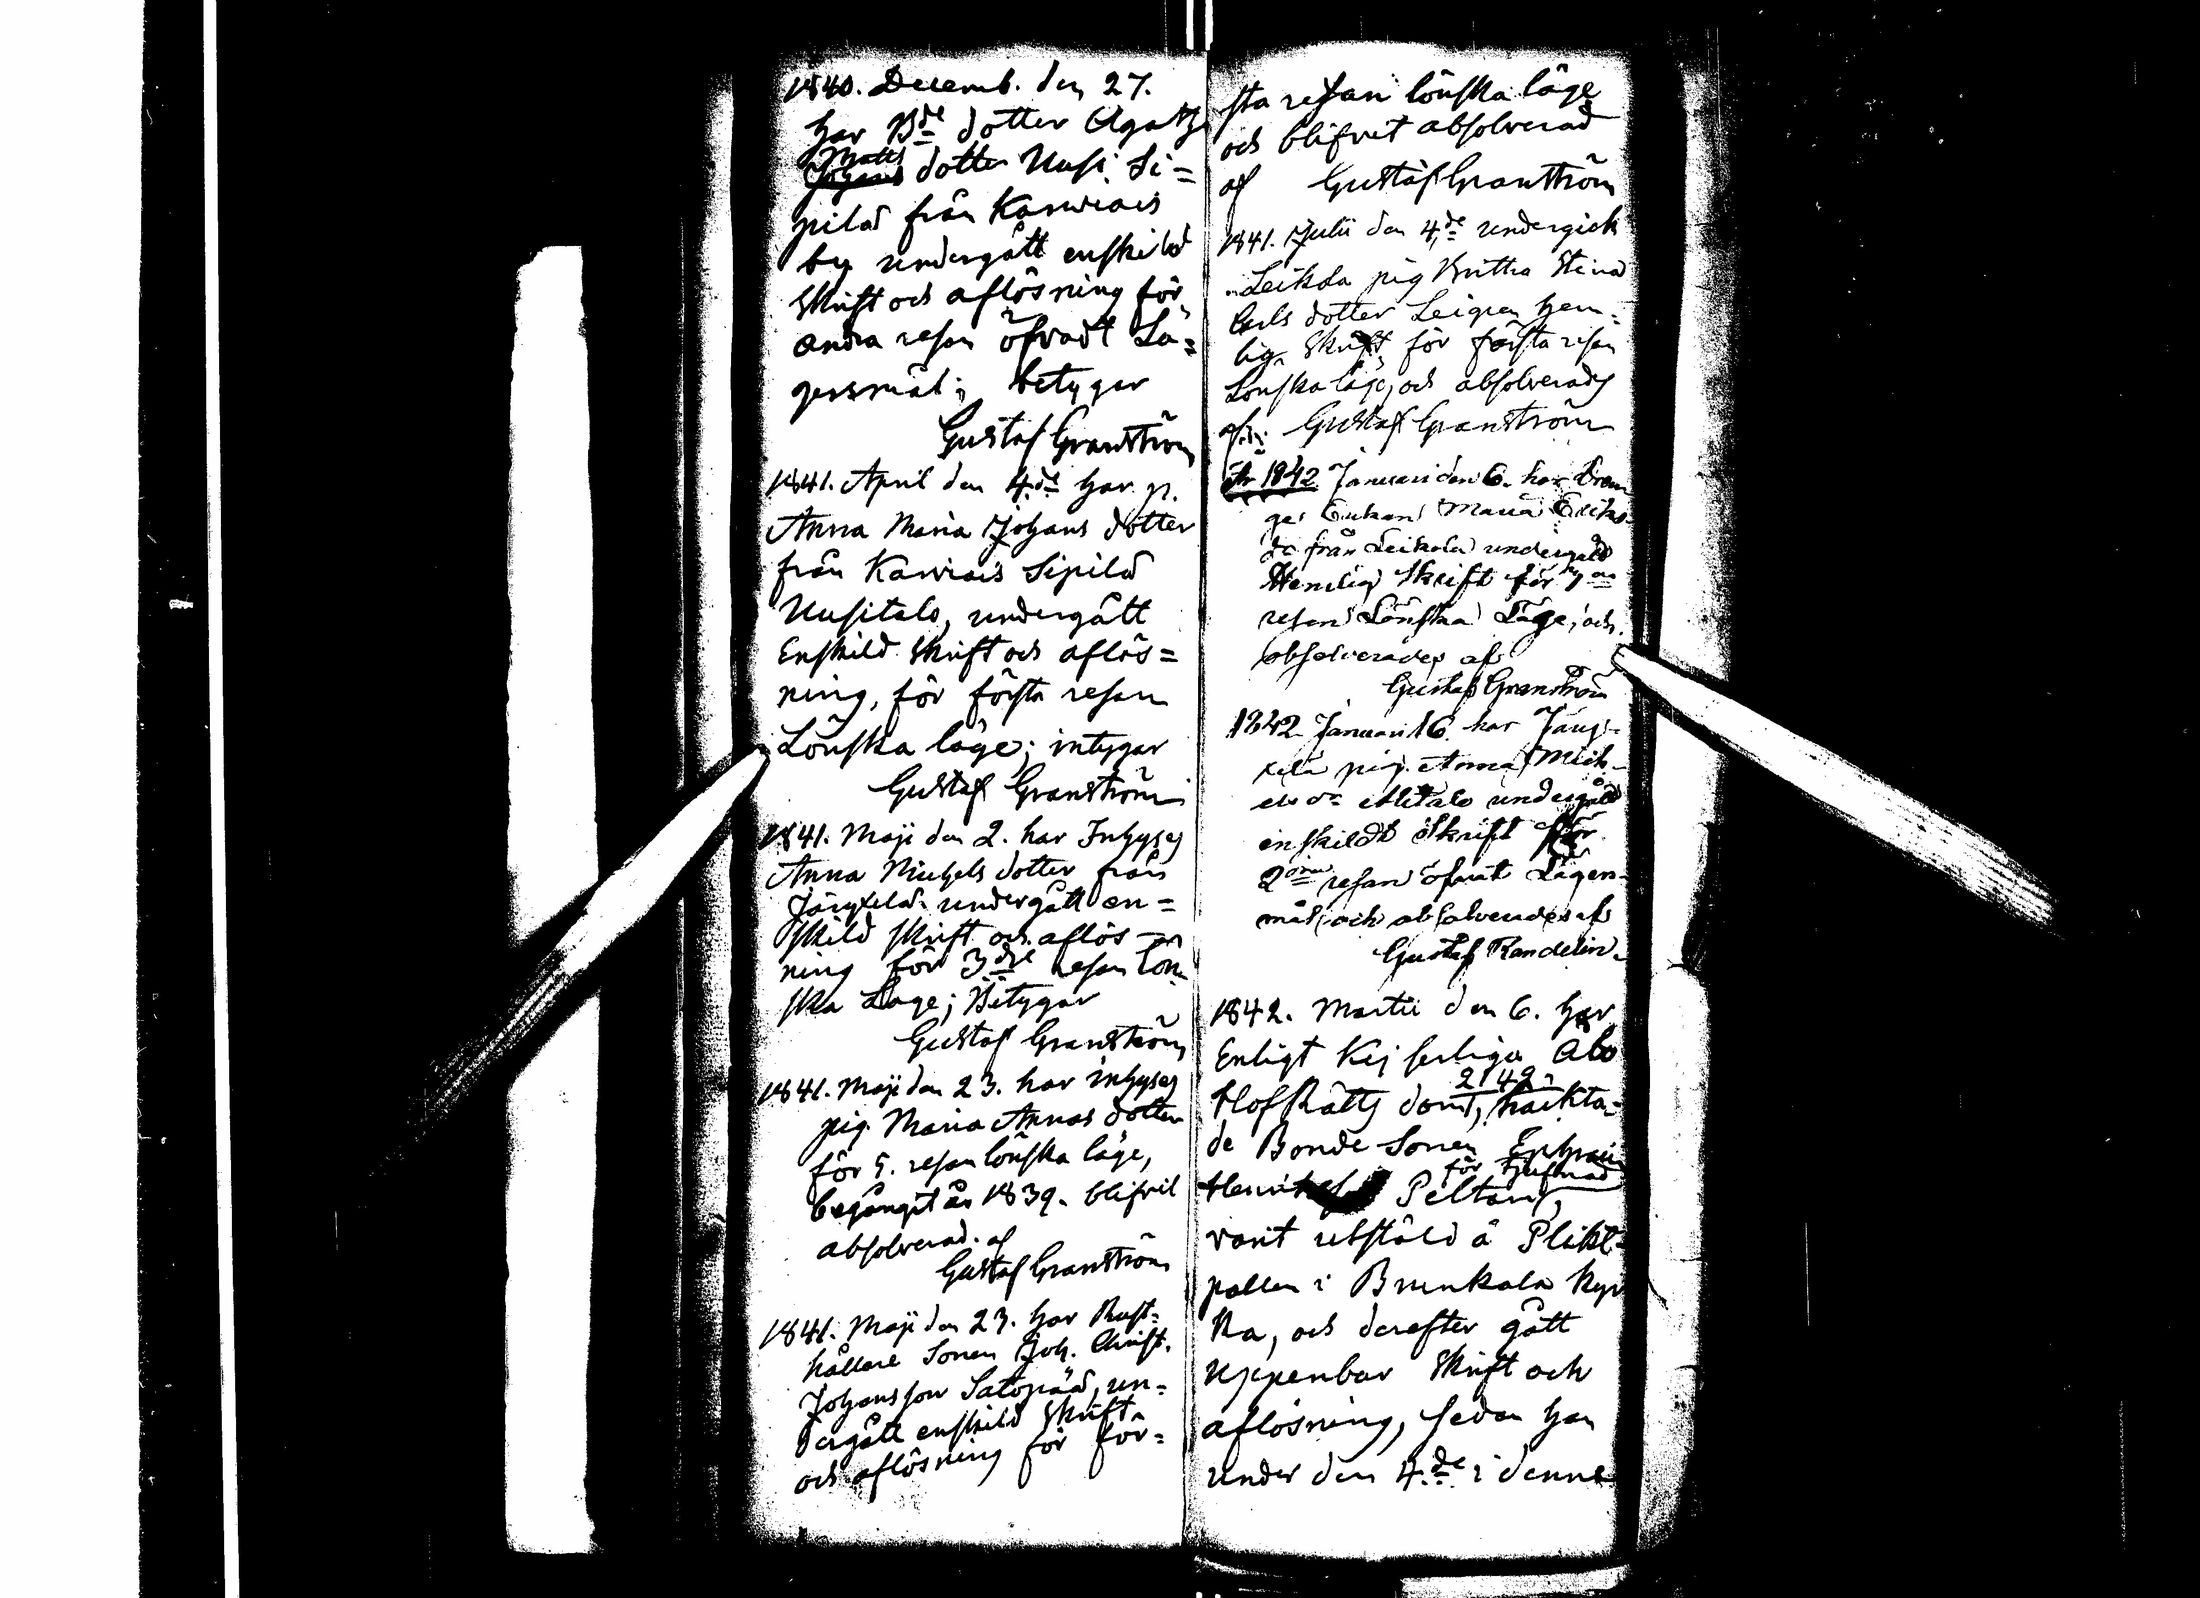 1840. Decemb. den 27.
har Bde dotter Agata
Matts
Johans dotter Uusi Si=
pilä från Karviais
by undergått enskild
Skrift och aflösning för
andra resan öfvadt Lä=
gersmål; betygar
Gustaf Granström
1841. April den 4de har p.
Anna Maria Johans dotter
från Karviais Sipilä
Uusitalo, undergått
Enskild Skrift och aflös=
ning, för första resan
Lönska läge; intygar
Gustaf Granström
1841. Maji den 2. har Inhyses
Anna Michels dotter från
undergått en=
skild skrift och aflös=
ning för 3dje resan Lön
ska Läge; Betygar
Gustaf Granström
1841. Maji den 23. har inhyses
pig. Maria Annas dotter
för 5. resan lönska läge,
begångit år 1839. blifvit
absolverad. af
Gustaf Granström
1841. Maji den 23. har Rust=
hållare Sonen Joh. Christ.
Johansson Satopää, un=
dergått enskild Skrift
och aflösning för för=
sta resan lönska läge
och blifvit absolverad
af Gustaf Granström
1841. Julii den 4de undergick
Leikola pig Britha Stina
Carls dotter Leigren hem=
lig Skrift för första resan
Lönska läge, och absolverades
af. Gustaf Granström
År 1842 Januari den 6. har
Enkan Maria Eriks
dr från Leikola undergått
Hemlig Skrift för
resan Lönska Läge, och
absolverades af
Gustaf Granström
1842 Januari 16. har
pig. Anna Mich
els dr undergått
enskildt Skrift för
2dra resan öfvat Lägers=
mål, och absolverades af
Gustaf Randelin.
1842. Martii den 6. har
Enligt Kejserliga Åbo
2/42
HofRätts dom, häkta=
de Bonde Sonen Ephraim
för tjufnad
Henriksson Peltari,
varit utstäld å Plikt=
pallen i Brunkala Kyr
ka, och derefter gått
uppenbar Skrift och
aflösning, sedan han
under den 4.de i denne